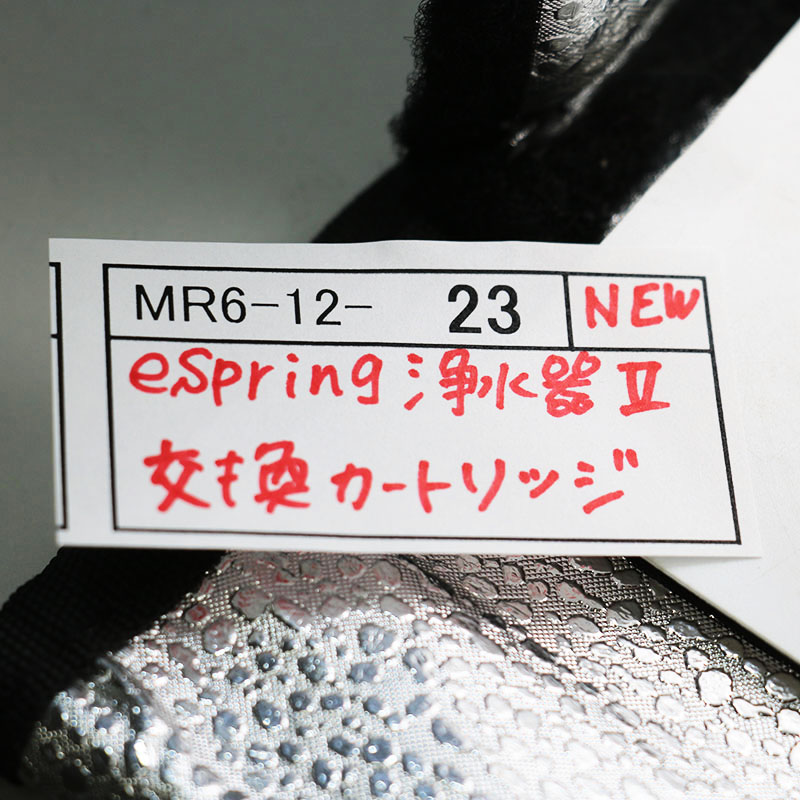 MR6-12- 23 NEW
eSpring 浄水器 Ⅱ
交換カートリッジ